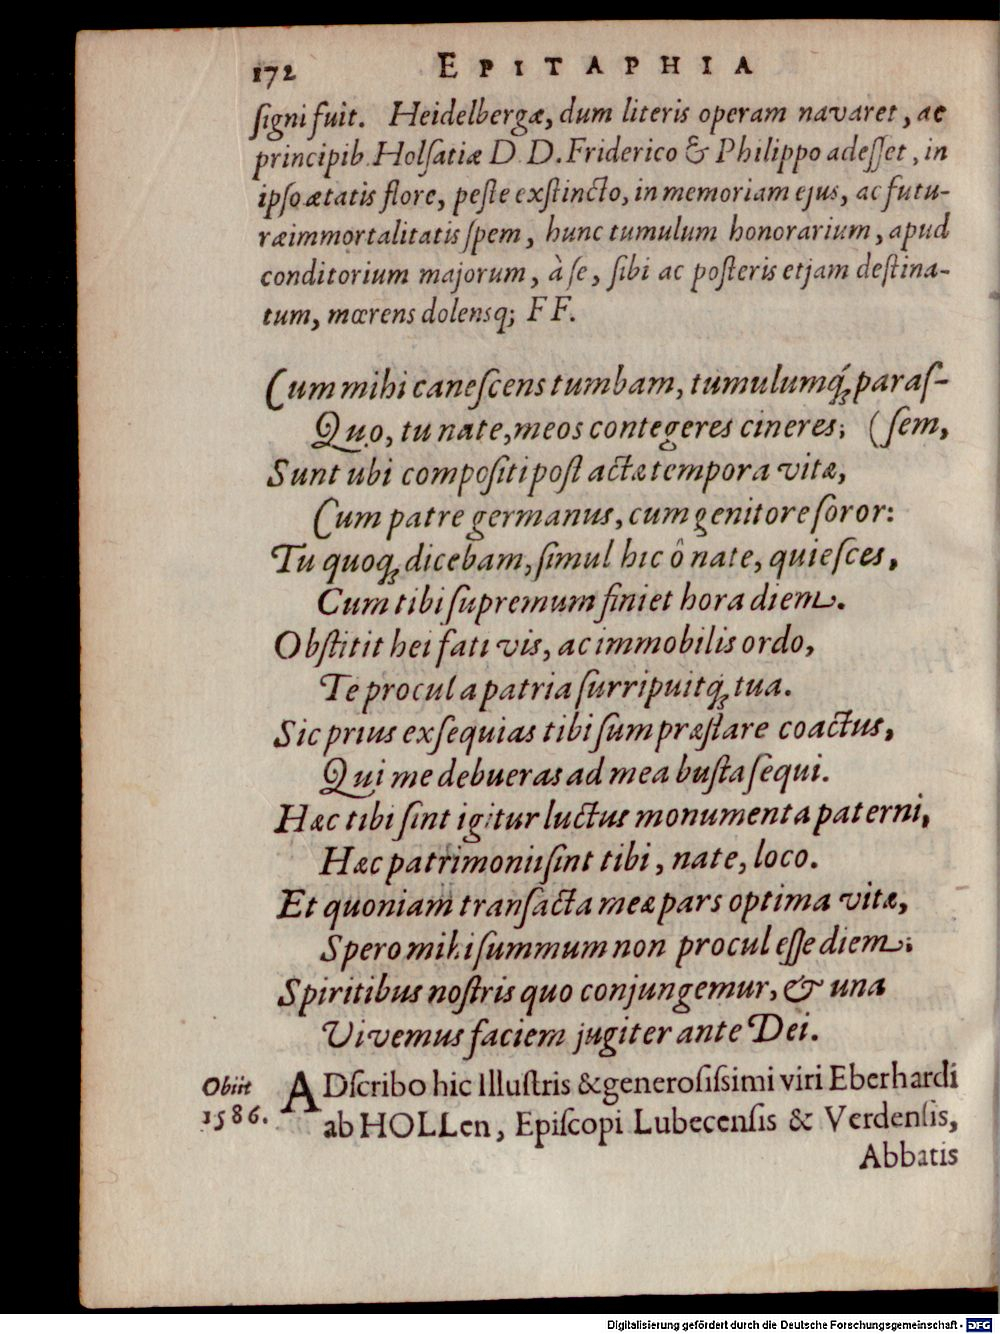 172 EPITAPHIA
ſigni fuit. Heidelbergæ, dum literis operam navaret, ac
principib. Holſatiæ D. D. Friderico & Philippo adeſſet, in
ipſo ætatis flore, peſte exſtincto, in memoriam ejus, ac futu-
ræ immortalitatis ſpem, hunc tumulum honorarium, apud
conditorium majorum, à ſe, ſibi ac poſteris etjam deſtina-
tum, mœrens dolensq; FF.
Cum mihi caneſcens tumbam, tumulumq́; paraſ-
Quo, tu nate, meos contegeres cineres; (ſem,
Sunt ubi compoſiti poſt actæ tempora vitæ,
Cum patre germanus, cum genitore ſoror:
Tu quoq; dicebam, ſimul hic ô nate, quieſces,
Cum tibi ſupremum finiet hora diem.
Obſtitit hei fati vis, ac immobilis ordo,
Te procul a patria ſurripuitq́; tua.
Sic prius exſequias tibi ſum præſtare coactus,
Qui me debueras ad mea buſta ſequi.
Hæc tibi ſint igitur luctus monumenta paterni,
Hæc patrimonii ſint tibi, nate, loco.
Et quoniam tranſacta meæ pars optima vitæ,
Spero mihi ſummum non procul eſſe diem:
Spiritibus noſtris quo conjungemur, & una
Vivemus faciem jugiter ante Dei.
Obiit
1586.
ADſcribo hic Illuſtris & generoſiſsimi viri Eberhardi
ab HOLLen, Epiſcopi Lubecenſis & Verdenſis,
Abbatis
Digitalisierung gefördert durch die Deutsche Forschungsgemeinschaft - DFG